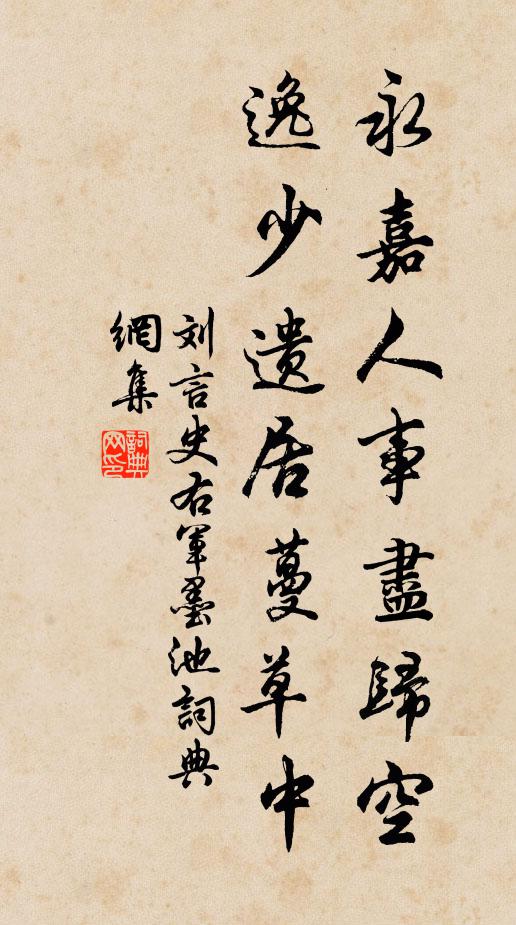 永嘉人事盡歸空
逸少遺居蔓草中
刘言史右軍墨池詞典
網集
詞典网印